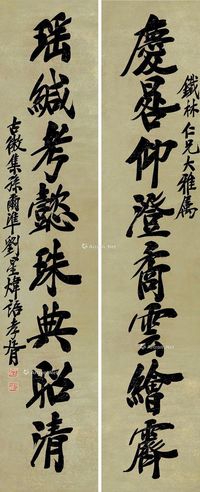 慶晷仰澄喬雲繪霽
鐵林仁兄大雅属
瑶緘考懿珠典昭清
古微集孫爾準劉星煒語孝胥